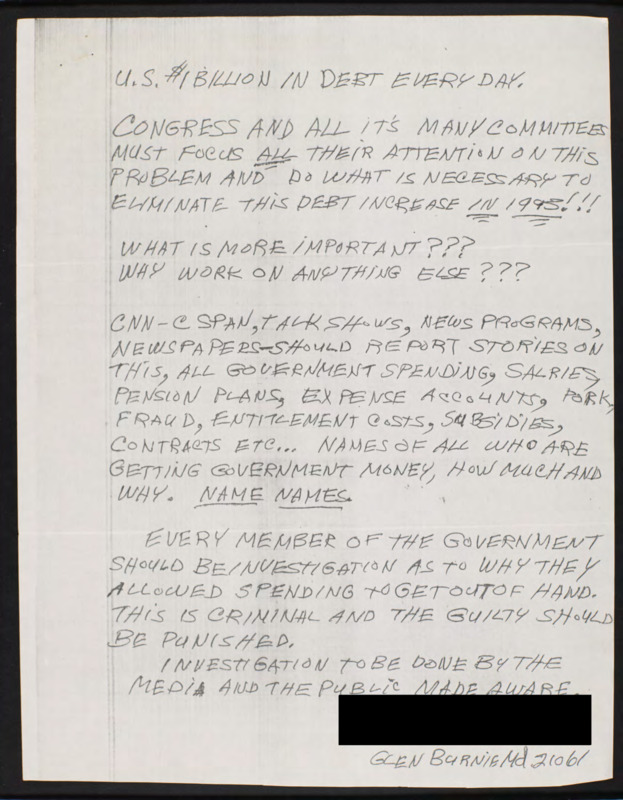 U.S. $1 BILLION IN DEBT EVERY DAY.
CONGRESS AND ALL IT'S MANY COMMITTEES
MUST FOCUS ALL THEIR ATTENTION ON THIS
PROBLEM AND DO WHAT IS NECESSARY TO
ELIMINATE THIS DEBT INCREASE IN 1993!!!
WHAT IS MORE IMPORTANT???
WHY WORK ON ANYTHING ELSE???
CNN-C SPAN, TALK SHOWS, NEWS PROGRAMS,
NEWSPAPERS-SHOULD REPORT STORIES ON
THIS, ALL GOVERNMENT SPENDING, SALRIES,
PENSION PLANS, EXPENSE ACCOUNTS, PORK,
FRAUD, ENTITLEMENT COSTS, SUBSIDIES,
CONTRACTS ETC... NAMES OF ALL WHO ARE
GETTING GOVERNMENT MONEY, HOW MUCH AND
WHY. NAME NAMES.
EVERY MEMBER OF THE GOVERNMENT
SHOULD BE INVESTIGATION AS TO WHY THEY
ALLOWED SPENDING TO GET OUT OF HAND.
THIS IS CRIMINAL AND THE GUILTY SHOULD
BE PUNISHED.
INVESTIGATION TO BE DONE BY THE
MEDIA AND THE PUBLIC MADE AWARE.
GLEN BURNIE Md 21061